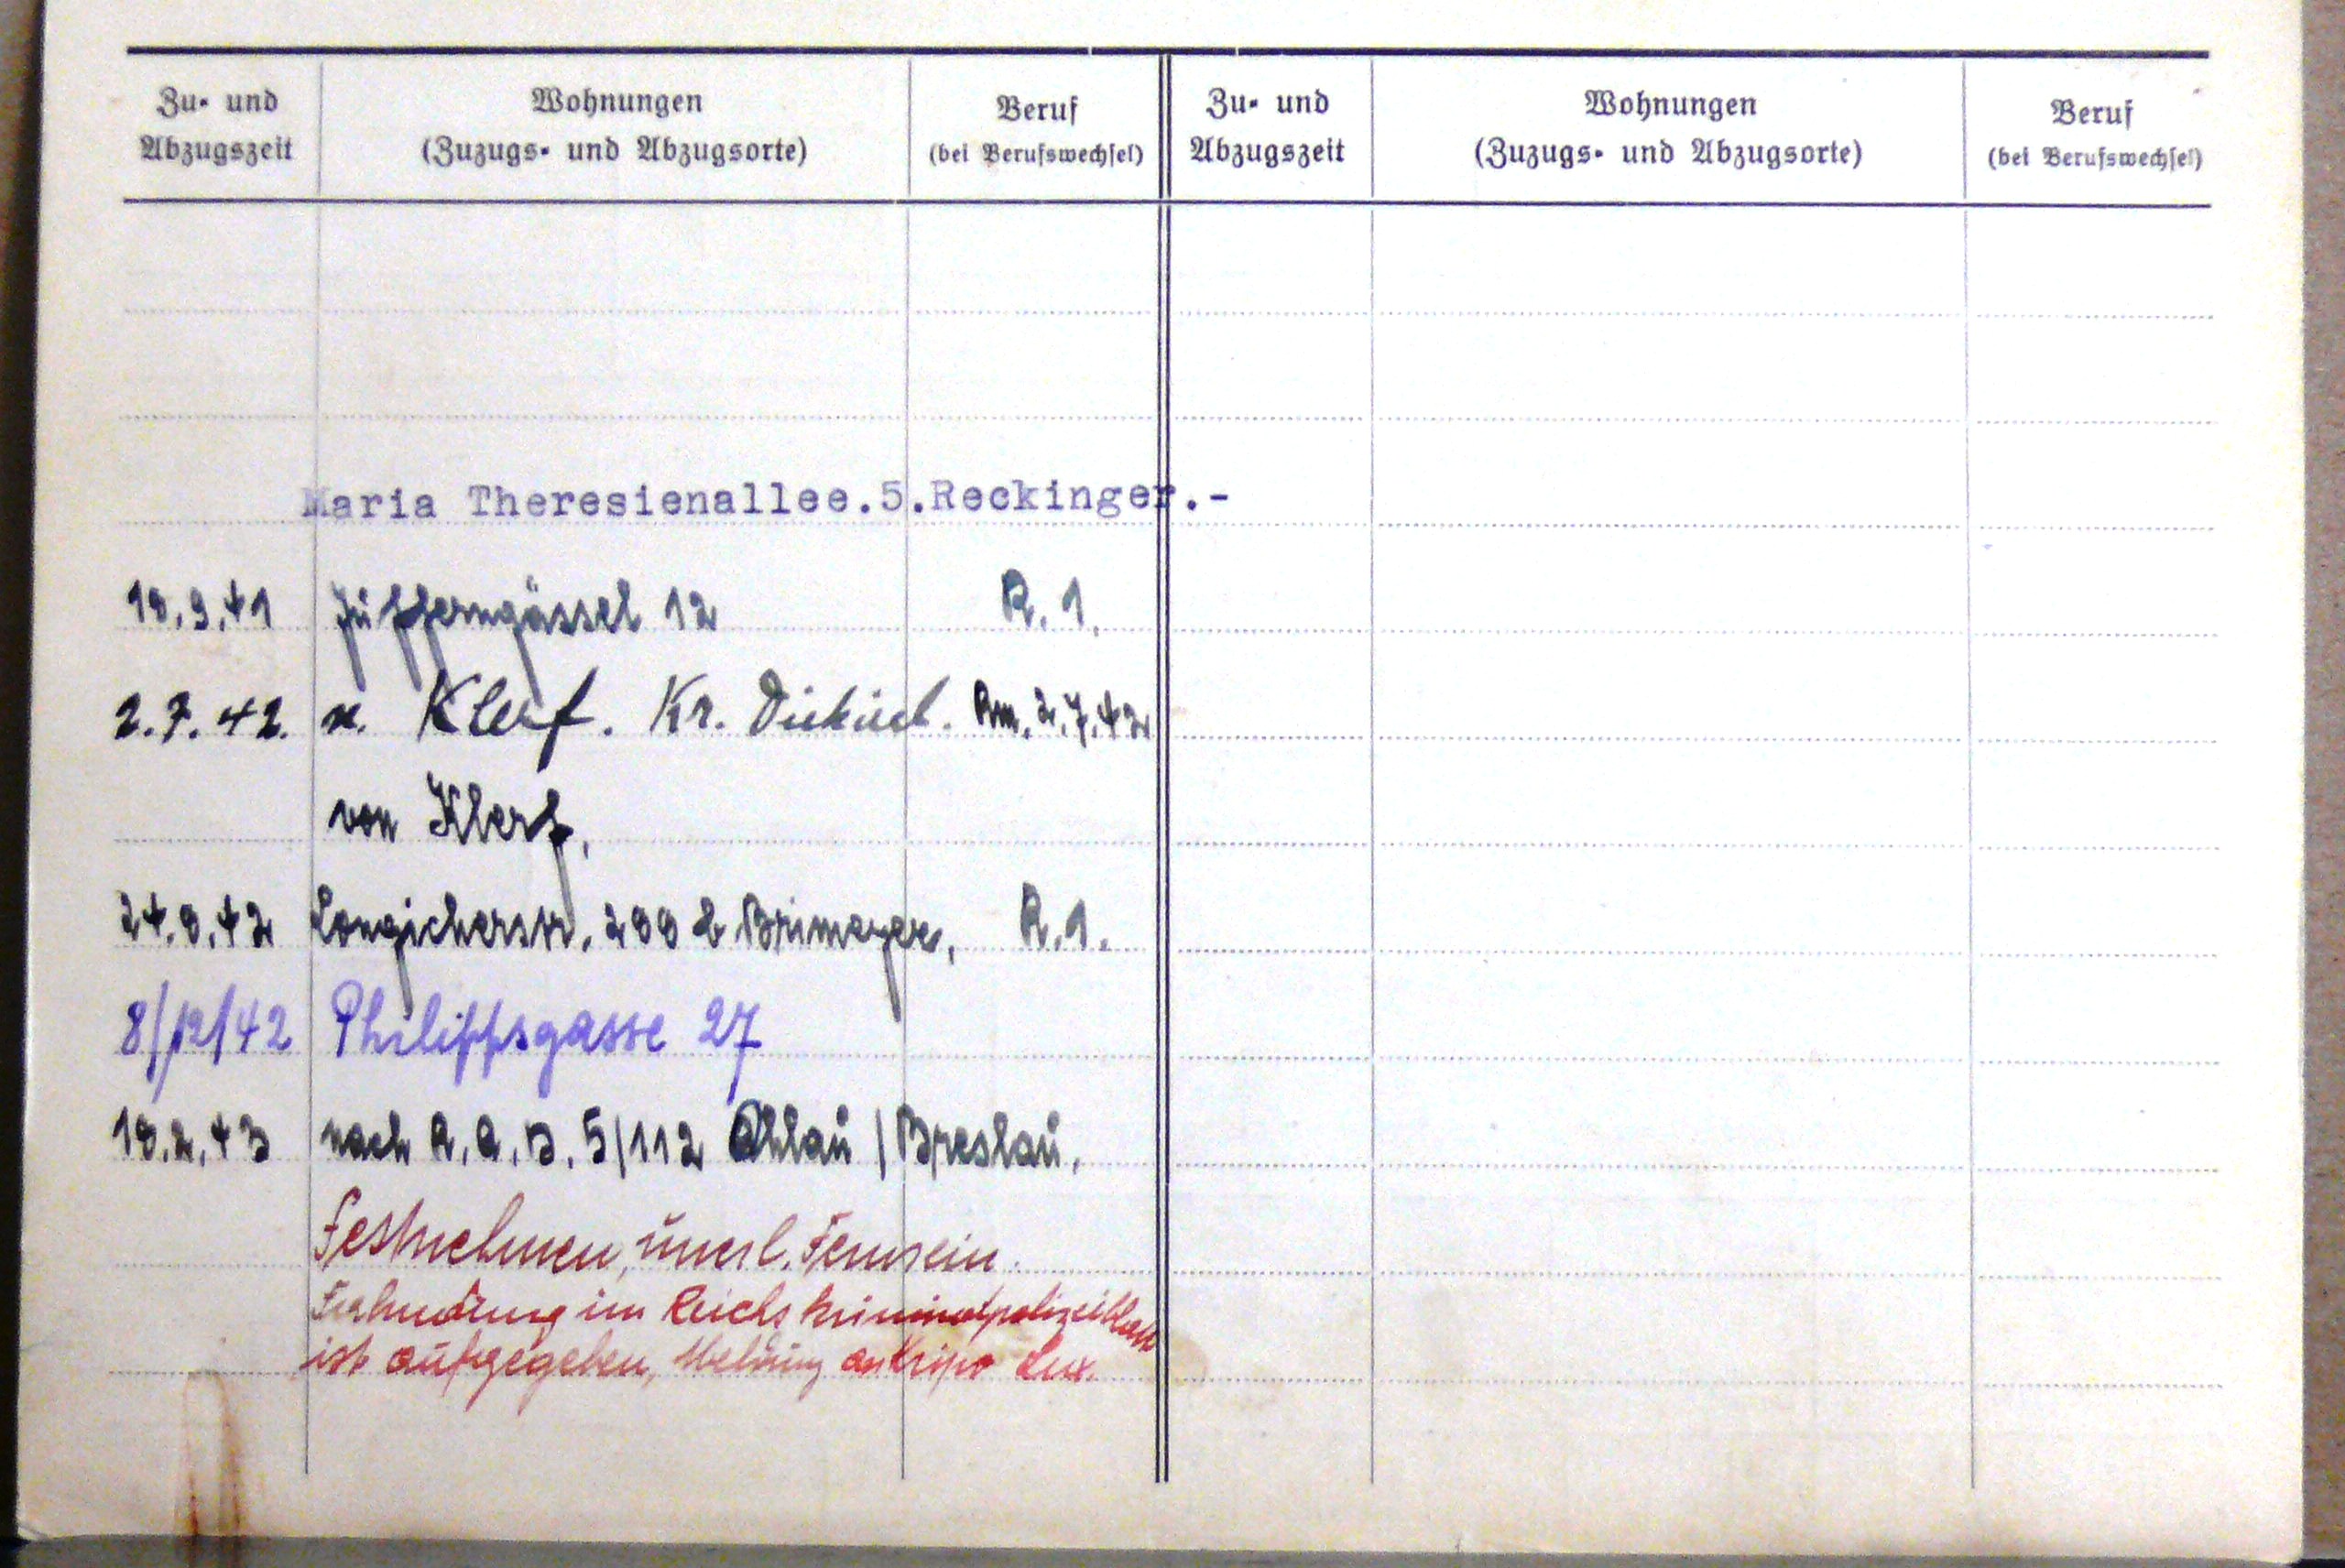 Zu- und Abzugszeit
Wohnungen
(Zuzugs- und Abzugsorte)
Beruf
(bei Berufswechsel)
Zu- und Abzugszeit
Wohnungen
(Zuzugs- und Abzugsorte)
Beruf
(bei Berufswechsel)
Maria Theresienallee.5.Reckinger.-
10.9.41 Jüfferngässel 12 R. 1.
2.7.42. n. Klerf. Kr. Diekirch. Am. 2.7.42
von Klerf,
42 Longicherstr. 200 b Brimeyer, R.1.
8/12/42 Philippsgasse 27
10.2.43 nach R.A.D. 5/112 Ohlau / Breslau.
Festnehmen, unerl. Fernsein.
Fahndung im Reichskriminalpolizeiblatt
ist aufgegeben, Meldung an Kripo Lux.